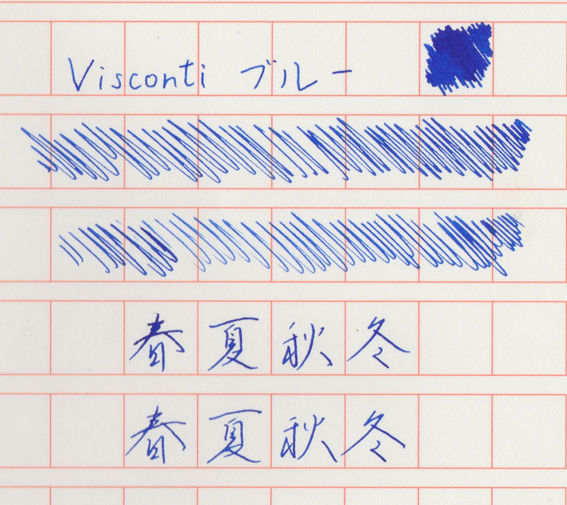 Visconti ブルー
春夏秋冬
春夏秋冬